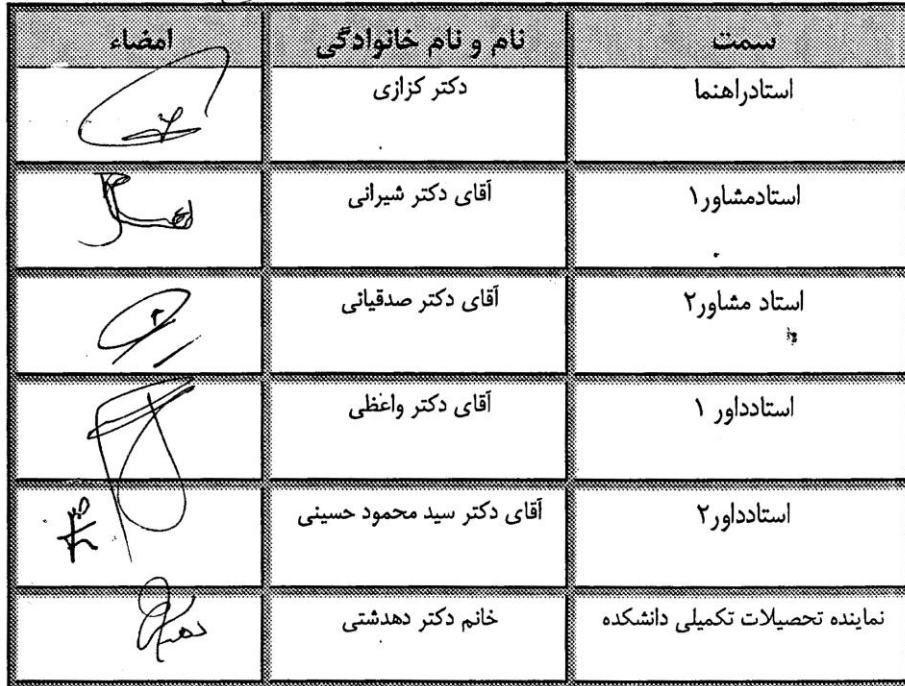 سمت نام و نام خانوادگی امضاء
استادراهنما دکتر کزازی
استادمشاور۱ آقای دکتر شیرانی
استاد مشاور۲ آقای دکتر صدقیانی
استادداور ۱ آقای دکتر واعظی
استادداور۲ آقای دکتر سید محمود حسینی
نماینده تحصیلات تکمیلی دانشکده خانم دکتر دهدشتی